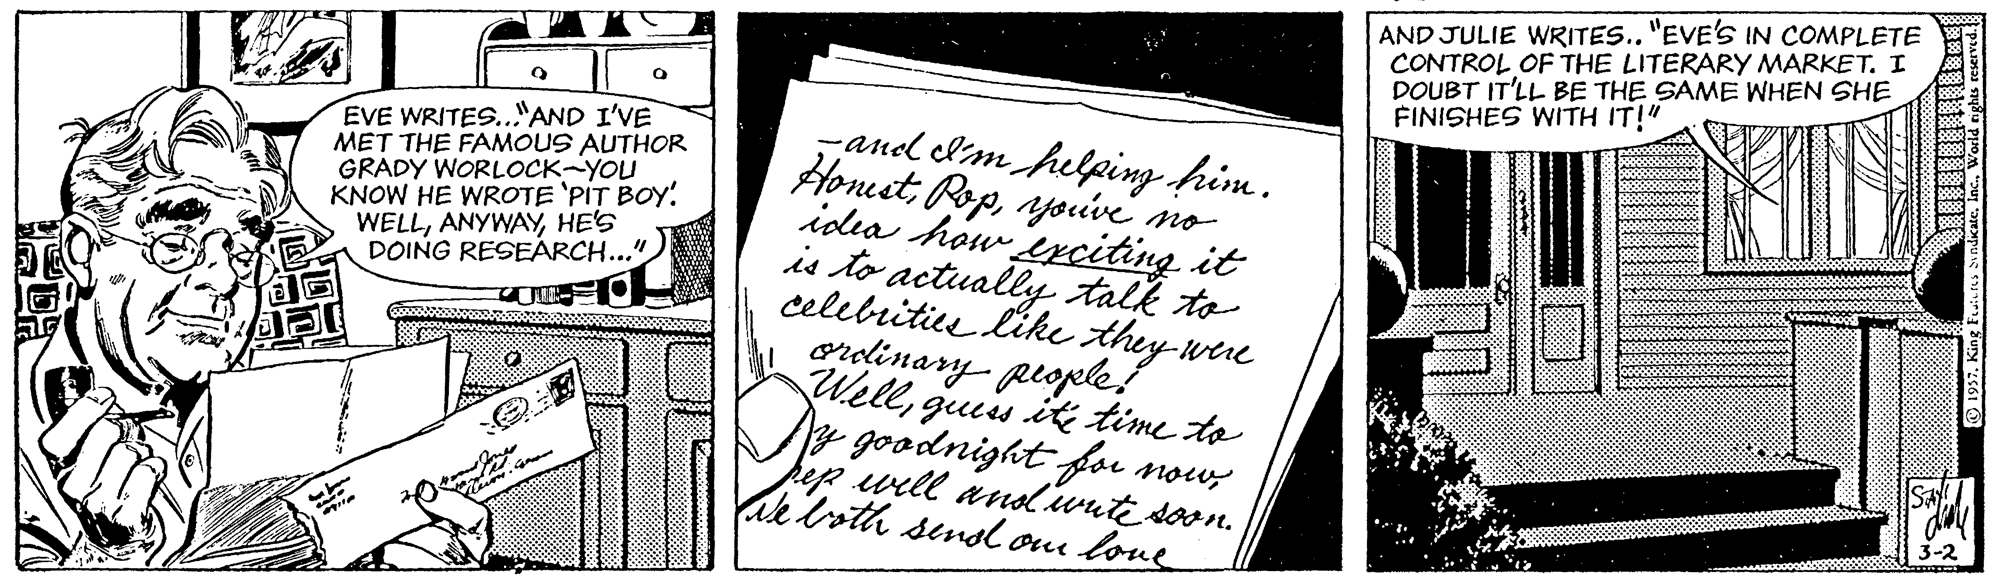 EVE WRITES..."AND I'VE
MET THE FAMOUS AUTHOR
GRADY WORLOCK—YOU
KNOW HE WROTE 'PIT BOY'.
WELL, ANYWAY, HE'S
DOING RESEARCH..."
—and I'm helping him.
Honest, Pop, you've no
idea how exciting it
is to actually talk to
celebrities like they were
ordinary people!
Well, guess it's time to
y goodnight for now,
eep well and write soon.
We both send our love
AND JULIE WRITES.. "EVE'S IN COMPLETE
CONTROL OF THE LITERARY MARKET. I
DOUBT IT'LL BE THE SAME WHEN SHE
FINISHES WITH IT!"
© 1957, King Features Syndicate, Inc., World rights reserved.
Stan
Drake
3-2